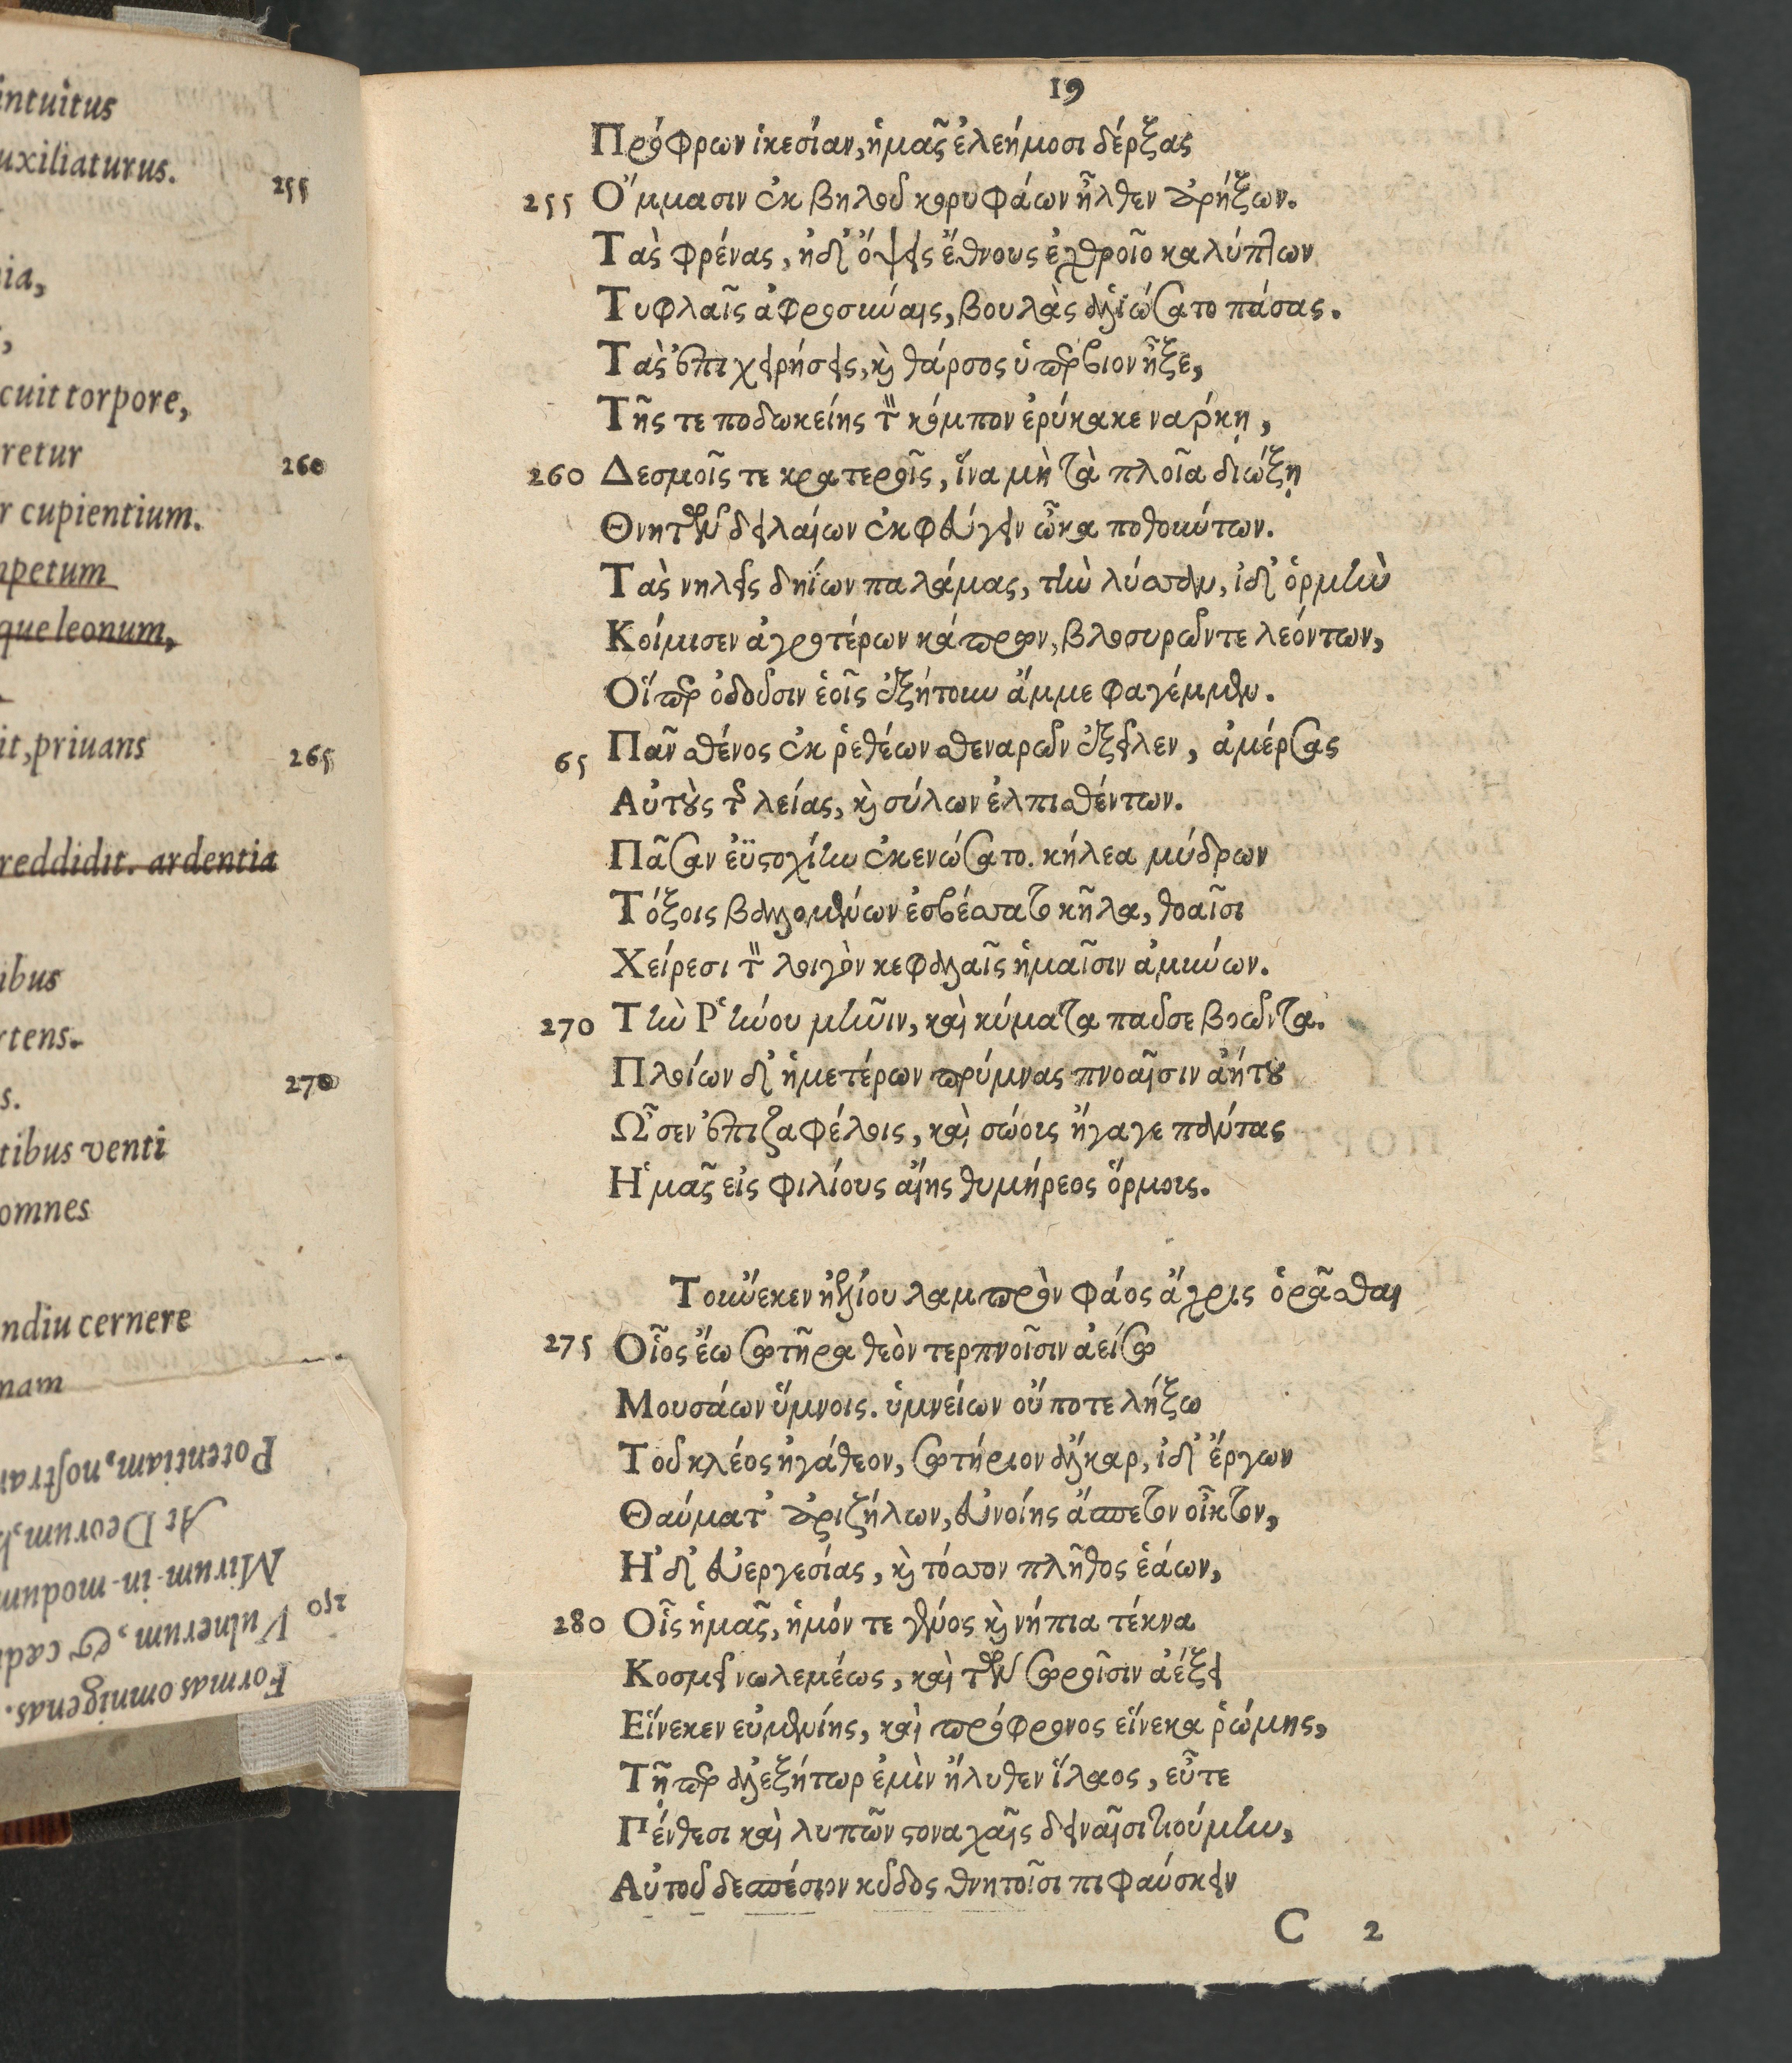 intuitus
uxiliaturus.
255
ia,
,
cuit torpore,
retur
260
r cupientium.
mpetum
que leonum,
it, priuans
265
reddidit. ardentia
ibus
rtens.
270
s.
tibus venti
omnes
ndiu cernere
nam
Potentiam, nostram
At Deorum,
Mirum-in-modum
250
Vulnerum, & cædi
Formas omnigenas.
19
Πρόφρων ἱκεσίαν, ἡμᾶς ἐλεήμοσι δέρξας
255 Ὄμμασιν ἐκ βηλοῦ κορυφάων ἦλθεν ἀρήξων.
Τὰς φρένας, ἠδ' ὄψεις ἔθνους ἐχθροῖο καλύπτων
Τυφλαῖς ἀφροσύναις, βουλὰς ἀλιώσατο πάσας.
Τὰς ἐπιχειρήσεις, καὶ θάρσος ὑπέρβιον ἦξε,
Τῆς τε ποδωκείης τὸν κόμπον ἐρύκακε νάρκῃ,
260 Δεσμοῖς τε κρατεροῖς, ἵνα μὴ τὰ πλοῖα διώξῃ
Θνητῶν δειλαίων ἐκφεύγειν ὦκα ποθούντων.
Τὰς νηλεῖς δηΐων παλάμας, τὴν λύσσαν, ἰδ' ὁρμὴν
Κοίμισεν ἀγροτέρων κάπρων, βλοσυρῶν τε λεόντων,
Οἵπερ ὀδοῦσιν ἑοῖς ἐζήτουν ἄμμε φαγέμμεν.
65 Πᾶν σθένος ἐκ ῥεθέων σθεναρῶν ἔξειλεν, ἀμέρσας
Αὐτοὺς τῆς λείας, καὶ σύλων ἐλπισθέντων.
Πᾶσαν ἐϋστοχίην ἐκενώσατο. κήλεα μύδρων
Τόξοις βαλλομένων ἐσβέσσατο κῆλα, θοαῖσι
Χείρεσι τὸν λοιγὸν κεφαλαῖς ἡμαῖσιν ἀμύνων.
270 Τὴν Ῥήνου μῆνιν, καὶ κύματα παῦσε βοῶντα.
Πλοίων δ' ἡμετέρων πρύμνας πνοαῖσιν ἀήτου
Ὦσεν ἐπιζαφέλοις, καὶ σώους ἤγαγε πάντας
Ἡμᾶς εἰς φιλίους αἴης θυμήρεος ὅρμους.
Τοὔνεκεν ἠελίου λαμπρὸν φάος ἄχρις ὁρᾶσθαι
275 Οἷος ἔω σωτῆρα θεὸν τερπνοῖσιν ἀείσω
Μουσάων ὕμνοις. ὑμνείων οὔποτε λήξω
Τοῦ κλέος ἠγάθεον, σωτήριον ἄλκαρ, ἰδ' ἔργων
Θαύματ' ἀριζήλων, εὐνοίης ἄσπετον οἶκτον,
Ἠδ' εὐεργεσίας, καὶ τόσσον πλῆθος ἐάων,
280 Οἷς ἡμᾶς, ἡμόν τε γένος καὶ νήπια τέκνα
Κοσμεῖ νωλεμέως, καὶ τὴν σωροῖσιν ἀέξει
Εἵνεκεν εὐμενίης, καὶ πρόφρονος εἵνεκα ῥώμης,
Τῇπερ ἀλεξήτωρ ἐμὶν ἤλυθεν ἵλαος, εὖτε
Πένθεσι καὶ λυπῶν στοναχαῖς δειναῖσι
Αὐτοῦ θεσπέσιον κῦδος θνητοῖσι πιφαύσκειν
C 2